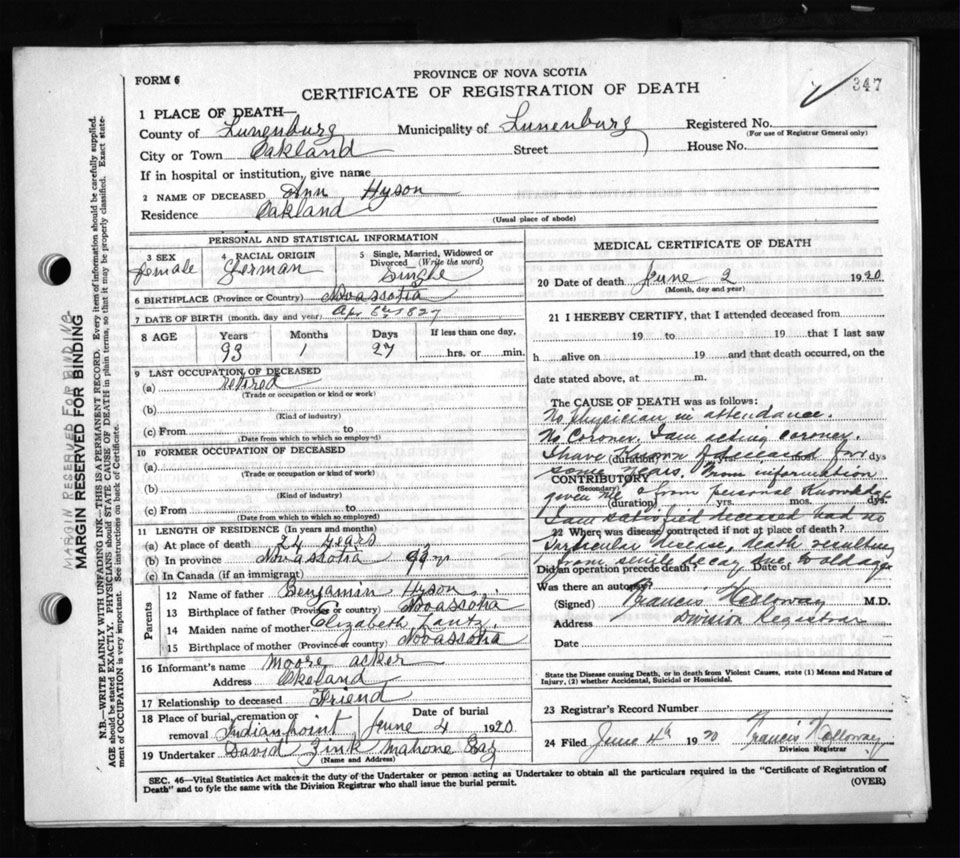 347
FORM 6
PROVINCE OF NOVA SCOTIA
CERTIFICATE OF REGISTRATION OF DEATH
1 PLACE OF DEATH—
County of Lunenburg Municipality of Lunenburg Registered No.
(For use of Registrar General only)
City or Town Oakland Street House No.
If in hospital or institution, give name
2 NAME OF DECEASED Ann Hyson
Residence Oakland
(Usual place of abode)
MARGIN RESERVED FOR BINDING
MARGIN RESERVED FOR BINDING
N.B.—WRITE PLAINLY WITH UNFADING INK—THIS IS A PERMANENT RECORD. Every item of information should be carefully supplied.
AGE should be stated EXACTLY. PHYSICIANS should STATE CAUSE OF DEATH in plain terms, so that it may be properly classified. Exact state-
ment of OCCUPATION is very important. See instructions on back of Certificate.
PERSONAL AND STATISTICAL INFORMATION
3 SEX 4 RACIAL ORIGIN 5 Single, Married, Widowed or
Divorced (Write the word)
female German Single
6 BIRTHPLACE (Province or Country) Novascotia
7 DATE OF BIRTH (month, day and year) Apr 6th 1827
8 AGE Years Months Days If less than one day,
93 1 27 hrs. or min.
9 LAST OCCUPATION OF DECEASED
(a) retired
(Trade or occupation or kind or work)
(b)
(Kind of industry)
(c) From
(Date from which to which so employed)
10 FORMER OCCUPATION OF DECEASED
(a)
(Trade or occupation or kind of work)
(b)
(Kind of industry)
(c) From
(Date from which to which so employed)
11 LENGTH OF RESIDENCE (In years and months)
(a) At place of death 24 years
(b) In province Novascotia 93 yr
(c) In Canada (if an immigrant)
Parents
12 Name of father Benjamin Hyson
13 Birthplace of father (Province or country) Novascotia
14 Maiden name of mother Elizabeth Lantz
15 Birthplace of mother (Province or country) Novascotia
16 Informant's name Moore acker
Address Okeland
17 Relationship to deceased Friend
18 Place of burial, cremation or Date of burial
removal Indian point June 4 1920
19 Undertaker David Zink Mahone Bay
(Name and Address)
MEDICAL CERTIFICATE OF DEATH
20 Date of death June 2 1920
(Month, day and year)
21 I HEREBY CERTIFY, that I attended deceased from
19 to 19 that I last saw
h alive on 19 and that death occurred, on the
date stated above, at m.
The CAUSE OF DEATH was as follows:
No physician in attendance.
No Coroner. I am acting coroner.
I have known deceased for
(duration) dys
some years. From information
CONTRIBUTORY
(Secondary)
given me & from personal Knowledge
(duration) yrs. mos. dys.
I am satisfied deceased had no
22 Where was disease contracted if not at place of death?
particular disease, death resulting
Did an operation precede death? Date of
from senile decay due to old age
Was there an autopsy?
(Signed) Francis Holloway M.D.
Address Division Registrar
Date
State the Disease causing Death, or in death from Violent Causes, state (1) Means and Nature of
Injury, (2) whether Accidental, Suicidal or Homicidal.
23 Registrar's Record Number
24 Filed June 4th 1920 Francis Holloway
Division Registrar
SEC. 46—Vital Statistics Act makes it the duty of the Undertaker or person acting as Undertaker to obtain all the particulars required in the "Certificate of Registration of
Death" and to fyle the same with the Division Registrar who shall issue the burial permit. (OVER)